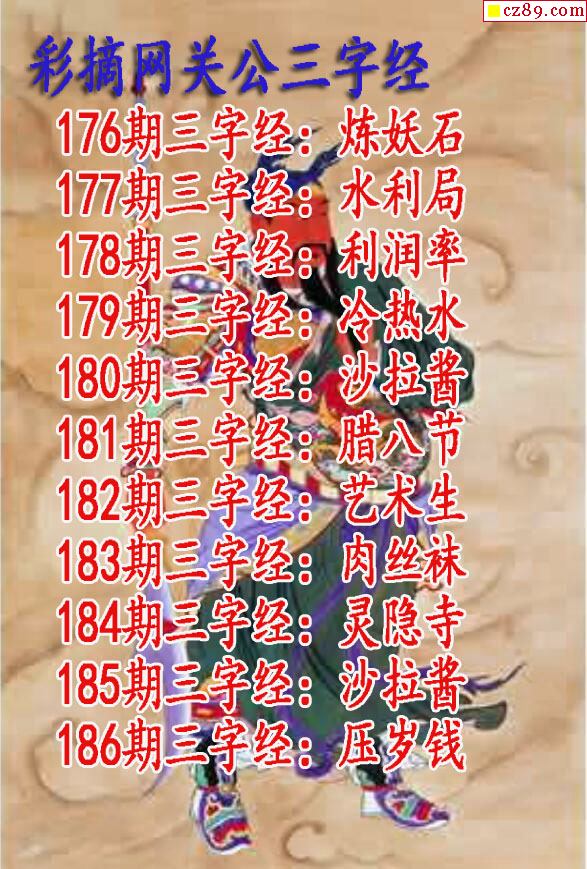 cz89.com
彩摘网关公三字经
176期三字经：炼妖石
177期三字经：水利局
178期三字经：利润率
179期三字经：冷热水
180期三字经：沙拉酱
181期三字经：腊八节
182期三字经：艺术生
183期三字经：肉丝袜
184期三字经：灵隐寺
185期三字经：沙拉酱
186期三字经：压岁钱